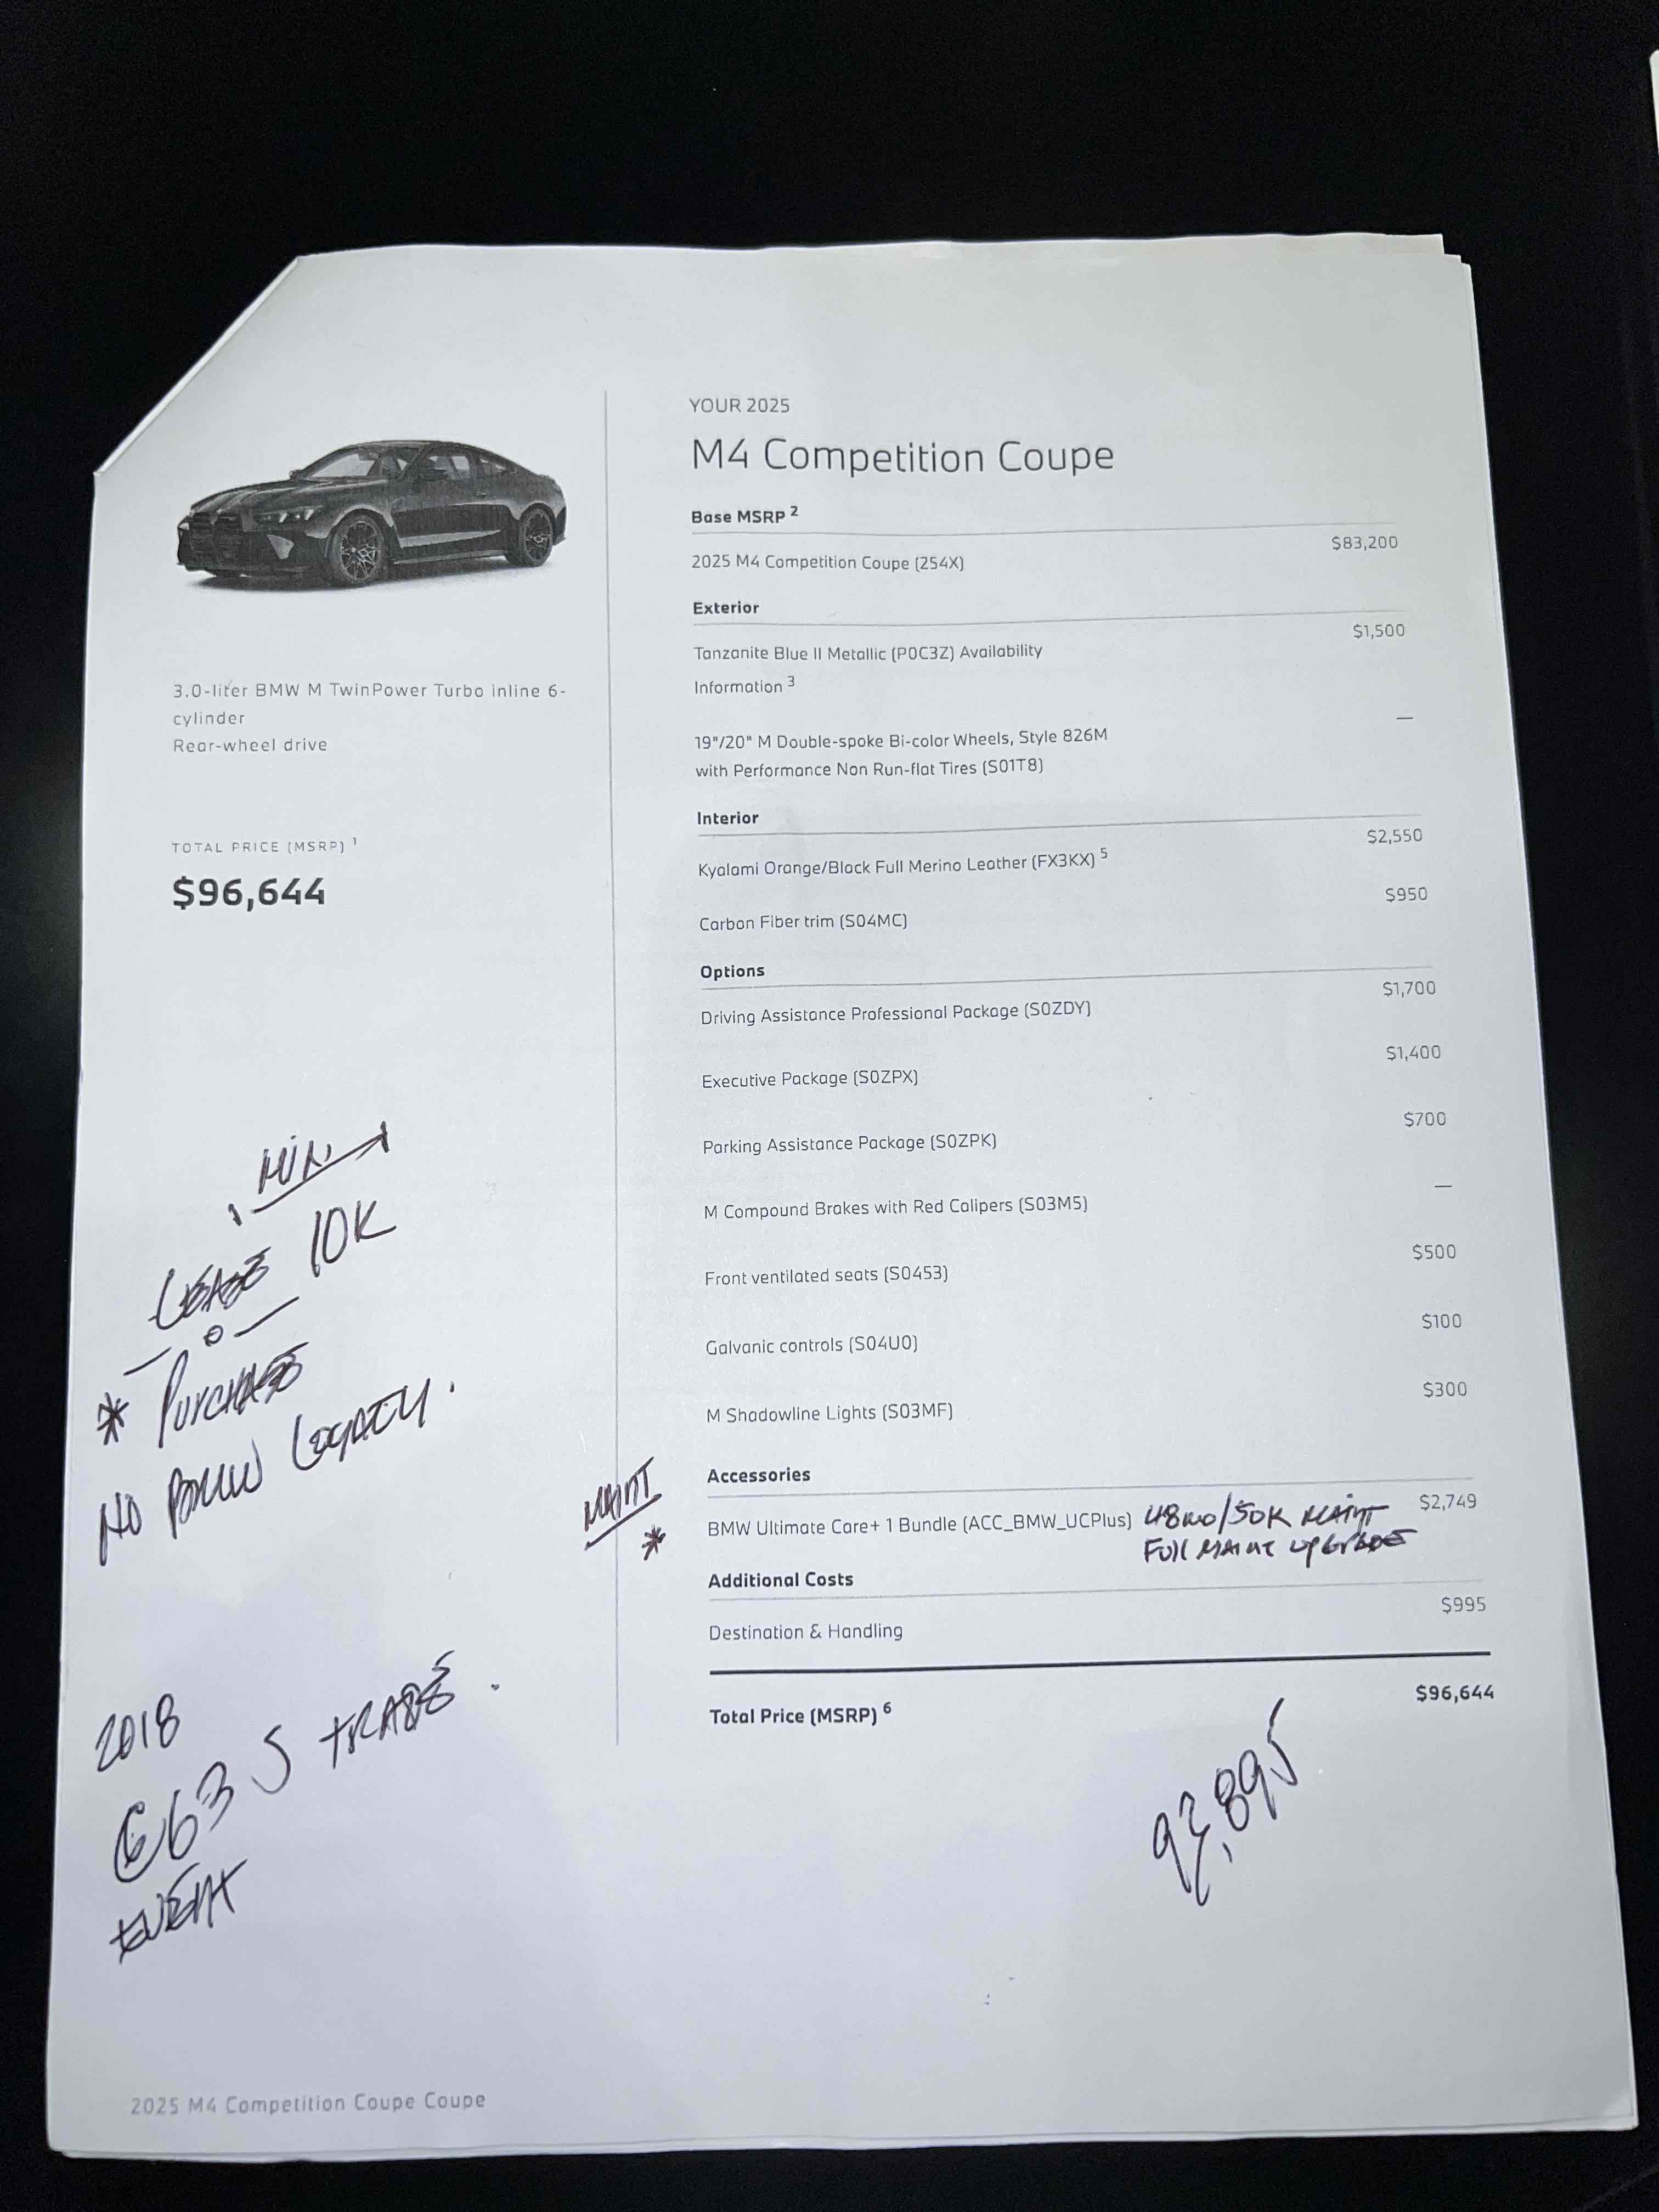 YOUR 2025
M4 Competition Coupe
Base MSRP 2
2025 M4 Competition Coupe (254X) $83,200
Exterior
Tanzanite Blue II Metallic (P0C3Z) Availability $1,500
Information 3
19"/20" M Double-spoke Bi-color Wheels, Style 826M —
with Performance Non Run-flat Tires (S01T8)
Interior
Kyalami Orange/Black Full Merino Leather (FX3KX) 5 $2,550
Carbon Fiber trim (S04MC) $950
Options
Driving Assistance Professional Package (S0ZDY) $1,700
Executive Package (S0ZPX) $1,400
Parking Assistance Package (S0ZPK) $700
M Compound Brakes with Red Calipers (S03M5) —
Front ventilated seats (S0453) $500
Galvanic controls (S04U0) $100
M Shadowline Lights (S03MF) $300
Accessories
MAINT
* BMW Ultimate Care+ 1 Bundle (ACC_BMW_UCPlus) 48mo/50K MAINT $2,749
FULL MAINT UPGRADE
Additional Costs
Destination & Handling $995
Total Price (MSRP) 6 $96,644
3.0-liter BMW M TwinPower Turbo inline 6-
cylinder
Rear-wheel drive
TOTAL PRICE (MSRP) 1
$96,644
LEASE 10K
* PURCHASE
NO BMW LOYALTY.
2018
63 S TRADE.
2025 M4 Competition Coupe Coupe